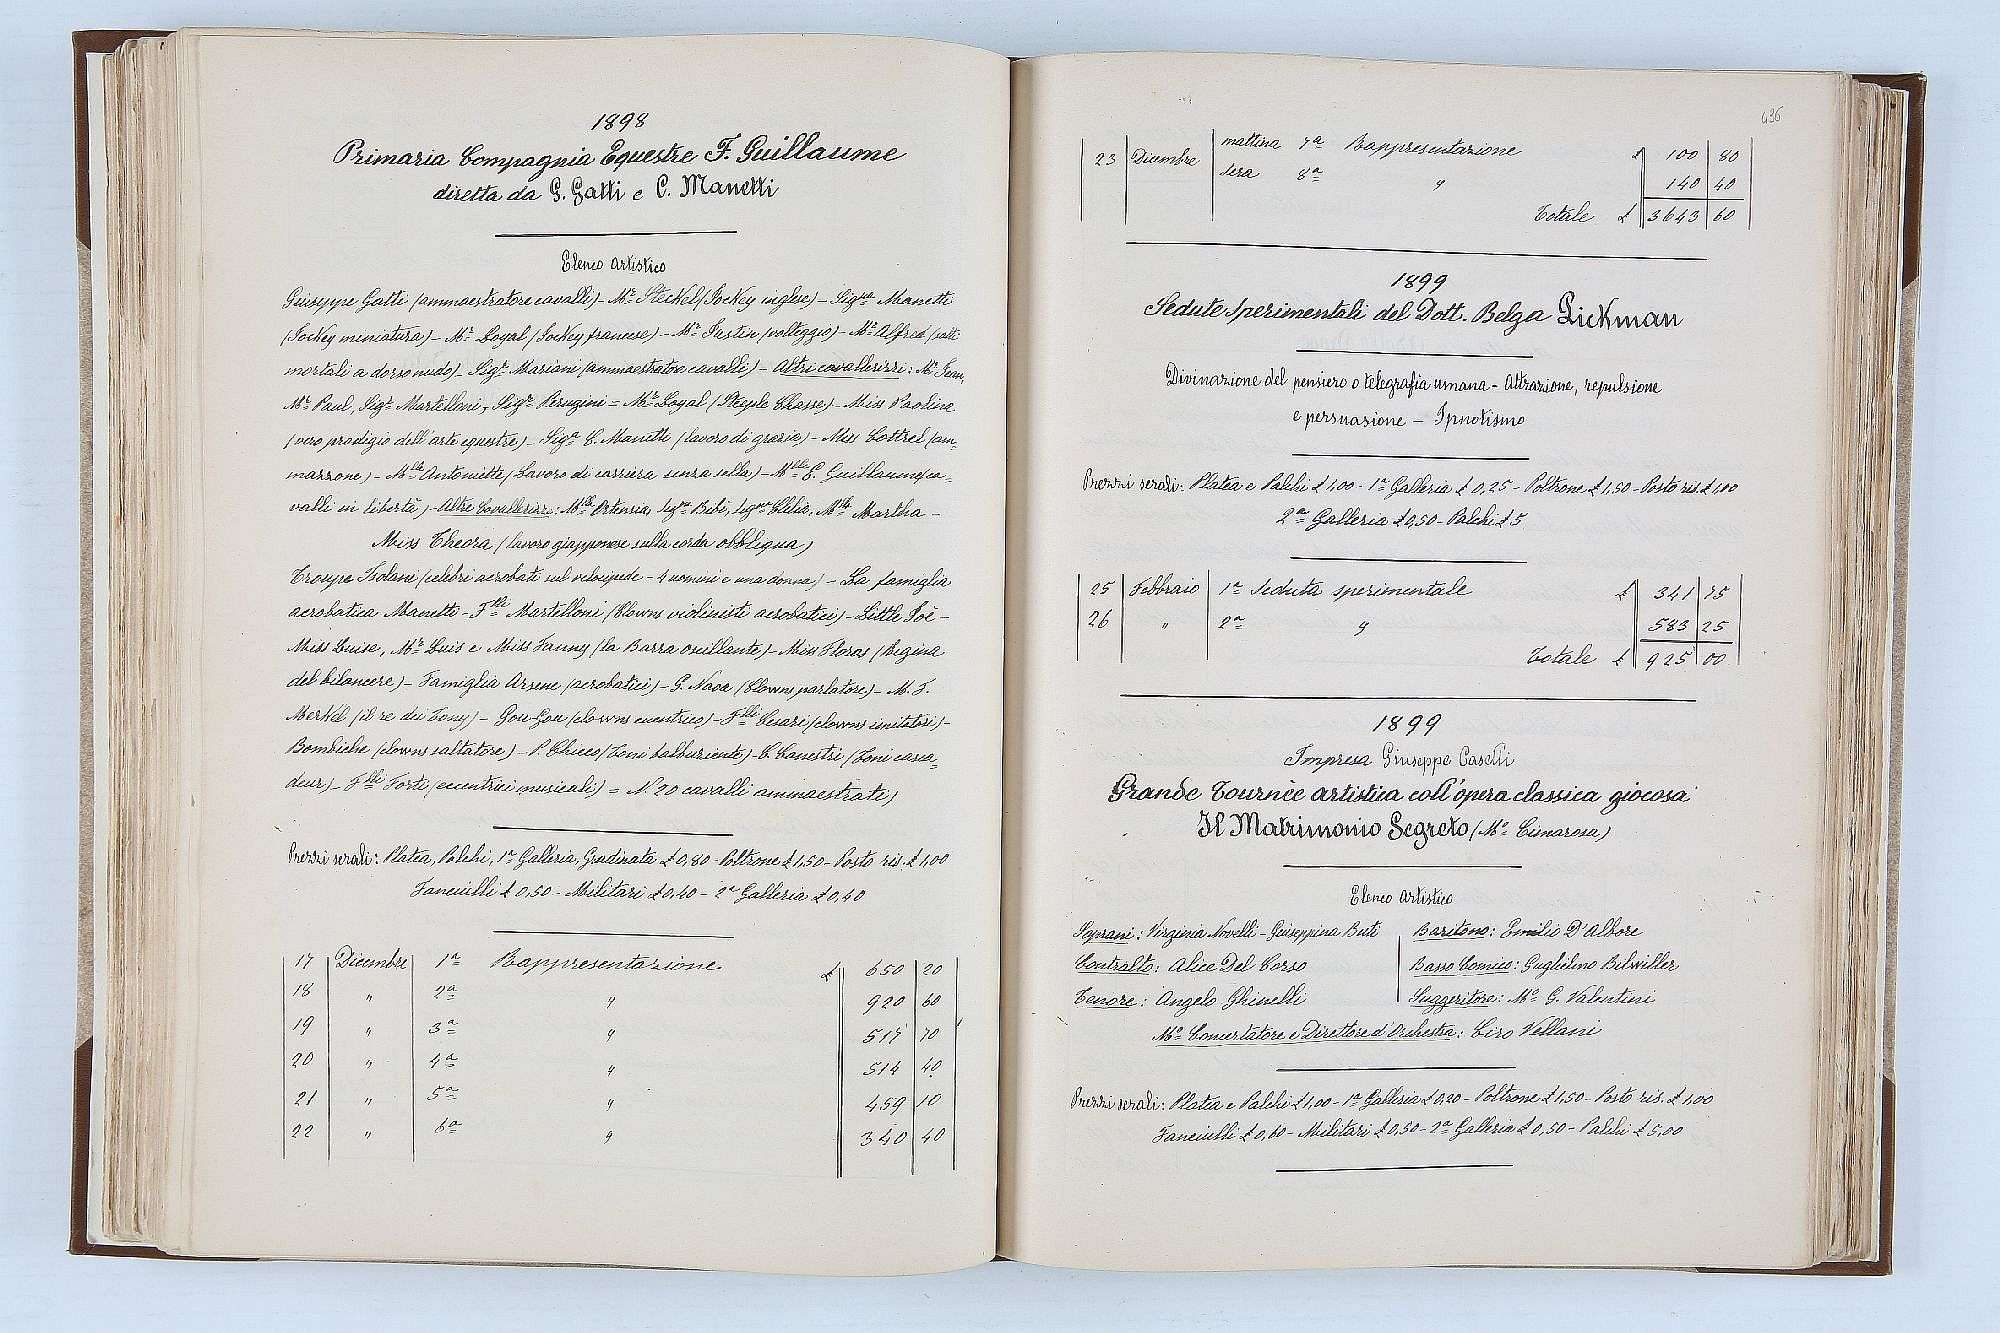 1898
Primaria Compagnia Equestre F. Guillaume
diretta da G. Gatti e C. Manetti
Elenco artistico
Giuseppe Gatti (ammaestratore cavalli) - Mr. Steckel (Jockey inglese) - Sig.na Manetti
(Jockey meniatura) - Mr. Loyal (Jockey francese) - Mr. Justin (volteggio) - Mr. Alfred (salti
mortali a dorso nudo) - Sigr. Mariani (ammaestratore cavalli) - Altri cavallerizzi: Mr. Jean,
Mr. Paul, Sigr. Martelloni, Sigr. Perugini = Mr. Loyal (Steeple Chasse) - Miss Paolina
(vero prodigio dell'arte equestre) - Sig.a C. Manetti (lavoro di grazia) - Miss Cottrel (am-
mazzone) - Mlle Antoniette (Lavoro di carriera senza sella) - Mlle G. Guillaume (ca-
valli in libertà) - Altre Cavallerizze: Mlle Ortensia, sigra Bebi, sigra Clelia, Mlle Martha -
Miss Theora (lavoro giapponese sulla corda obbliqua)
Troupe Isolani (celebri acrobati sul velocipede - 4 uomini e una donna) - La famiglia
acrobatica Manetti - F.lli Martelloni (Clowns violinisti acrobatici) - Little Joè -
Miss Luise, Mr. Luis e Miss Fanny (la Barra oscillante) - Miss Floras (Regina
del bilancere) - Famiglia Arsene (acrobatici) - G. Nava (Clowns parlatore) - M. F.
Merkel (il re dei Tony) - Gou-Gou (clowns eccentrico) - F.lli Cesari (clowns imitatori) -
Bombiche (clowns saltatore) - P. Chicco (Toni balbuziente) - C. Canestri (Toni casca-
deur) - F.lli Forti (eccentrici musicali) = N. 20 cavalli ammaestrati)
Prezzi serali: Platea, Palchi, 1a Galleria, Gradinata £ 0,80 - Poltrone £ 1,50 - Posto ris. £ 1,00
Fanciulli £ 0,50 - Militari £ 0,40 - 2a Galleria £ 0,40
17 Dicembre 1a Rappresentazione. £ 650 20
18 " 2a " 920 60
19 " 3a " 517 70
20 " 4a " 514 40
21 " 5a " 459 10
22 " 6a " 340 40
436
23 Dicembre mattina 7a Rappresentazione £ 100 80
sera 8a " 140 40
Totale £ 3643 60
1899
Sedute Sperimentali del Dott. Belga Pickman
Divinazione del pensiero o telegrafia umana - Attrazione, repulsione
e persuasione - Ipnotismo
Prezzi serali: Platea e Palchi £ 1,00 - 1a Galleria £ 0,25 - Poltrone £ 1,50 - Posto ris. £ 1,00
2a Galleria £ 0,50 - Palchi £ 5
25 Febbraio 1a Seduta sperimentale £ 341 75
26 " 2a " 583 25
Totale £ 925 00
1899
Impresa Giuseppe Caselli
Grande Tournèe artistica coll'opera classica giocosa
Il Matrimonio Segreto (Mo. Cimarosa)
Elenco artistico
Soprani: Virginia Novelli - Giuseppina Buti
Contralto: Alice Del Corso
Tenore: Angelo Ghinelli
Baritono: Emilio D'Albore
Basso Comico: Guglielmo Bilwiller
Suggeritore: Mo. G. Valentini
Mo. Concertatore e Direttore d'Orchestra: Ciro Vellani
Prezzi serali: Platea e Palchi £ 1,00 - 1a Galleria £ 0,20 - Poltrone £ 1,50 - Posto ris. £ 1,00
Fanciulli £ 0,60 - Militari £ 0,50 - 2a Galleria £ 0,50 - Palchi £ 5,00